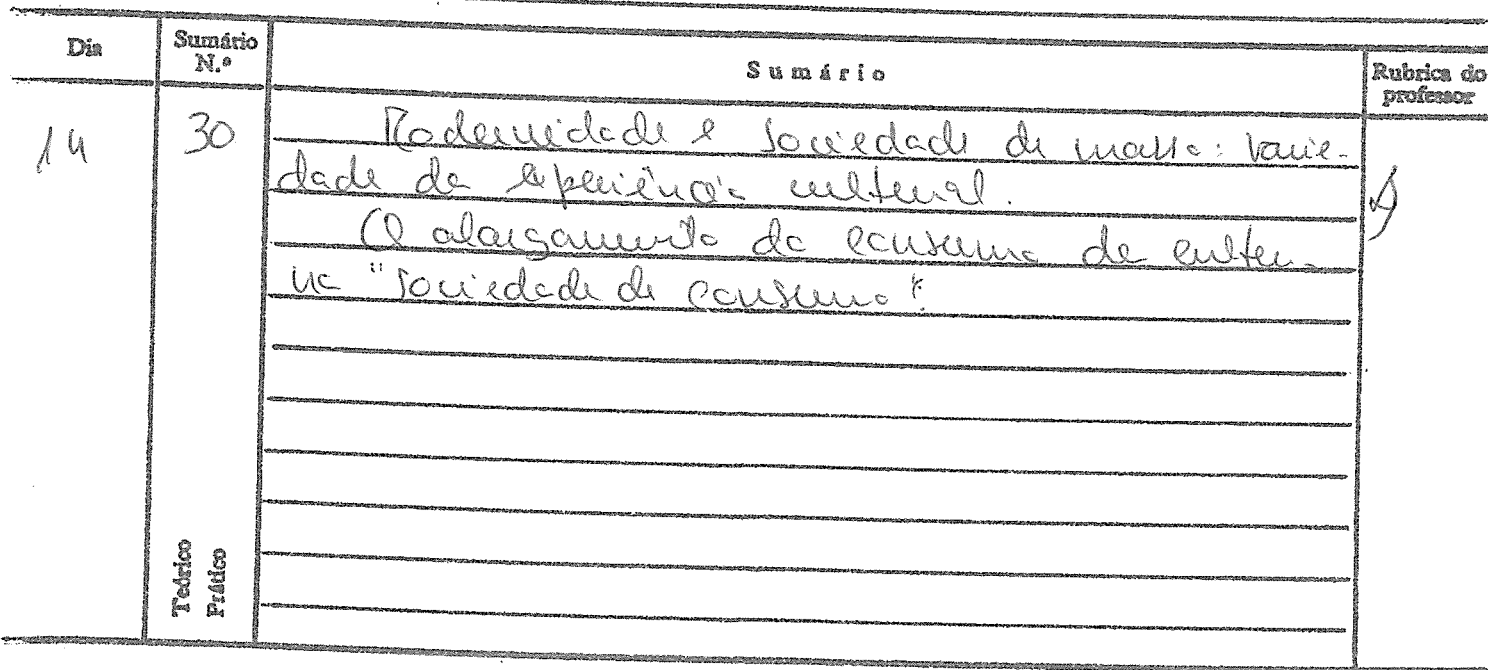 Dia Sumário N.º Sumário Rubrica do professor
14 30 Modernidade e sociedade de massa: varie-
dade da experiência cultural.
O alargamento do consumo de cultu-
na "sociedade de consumo".
Teórico
Prático